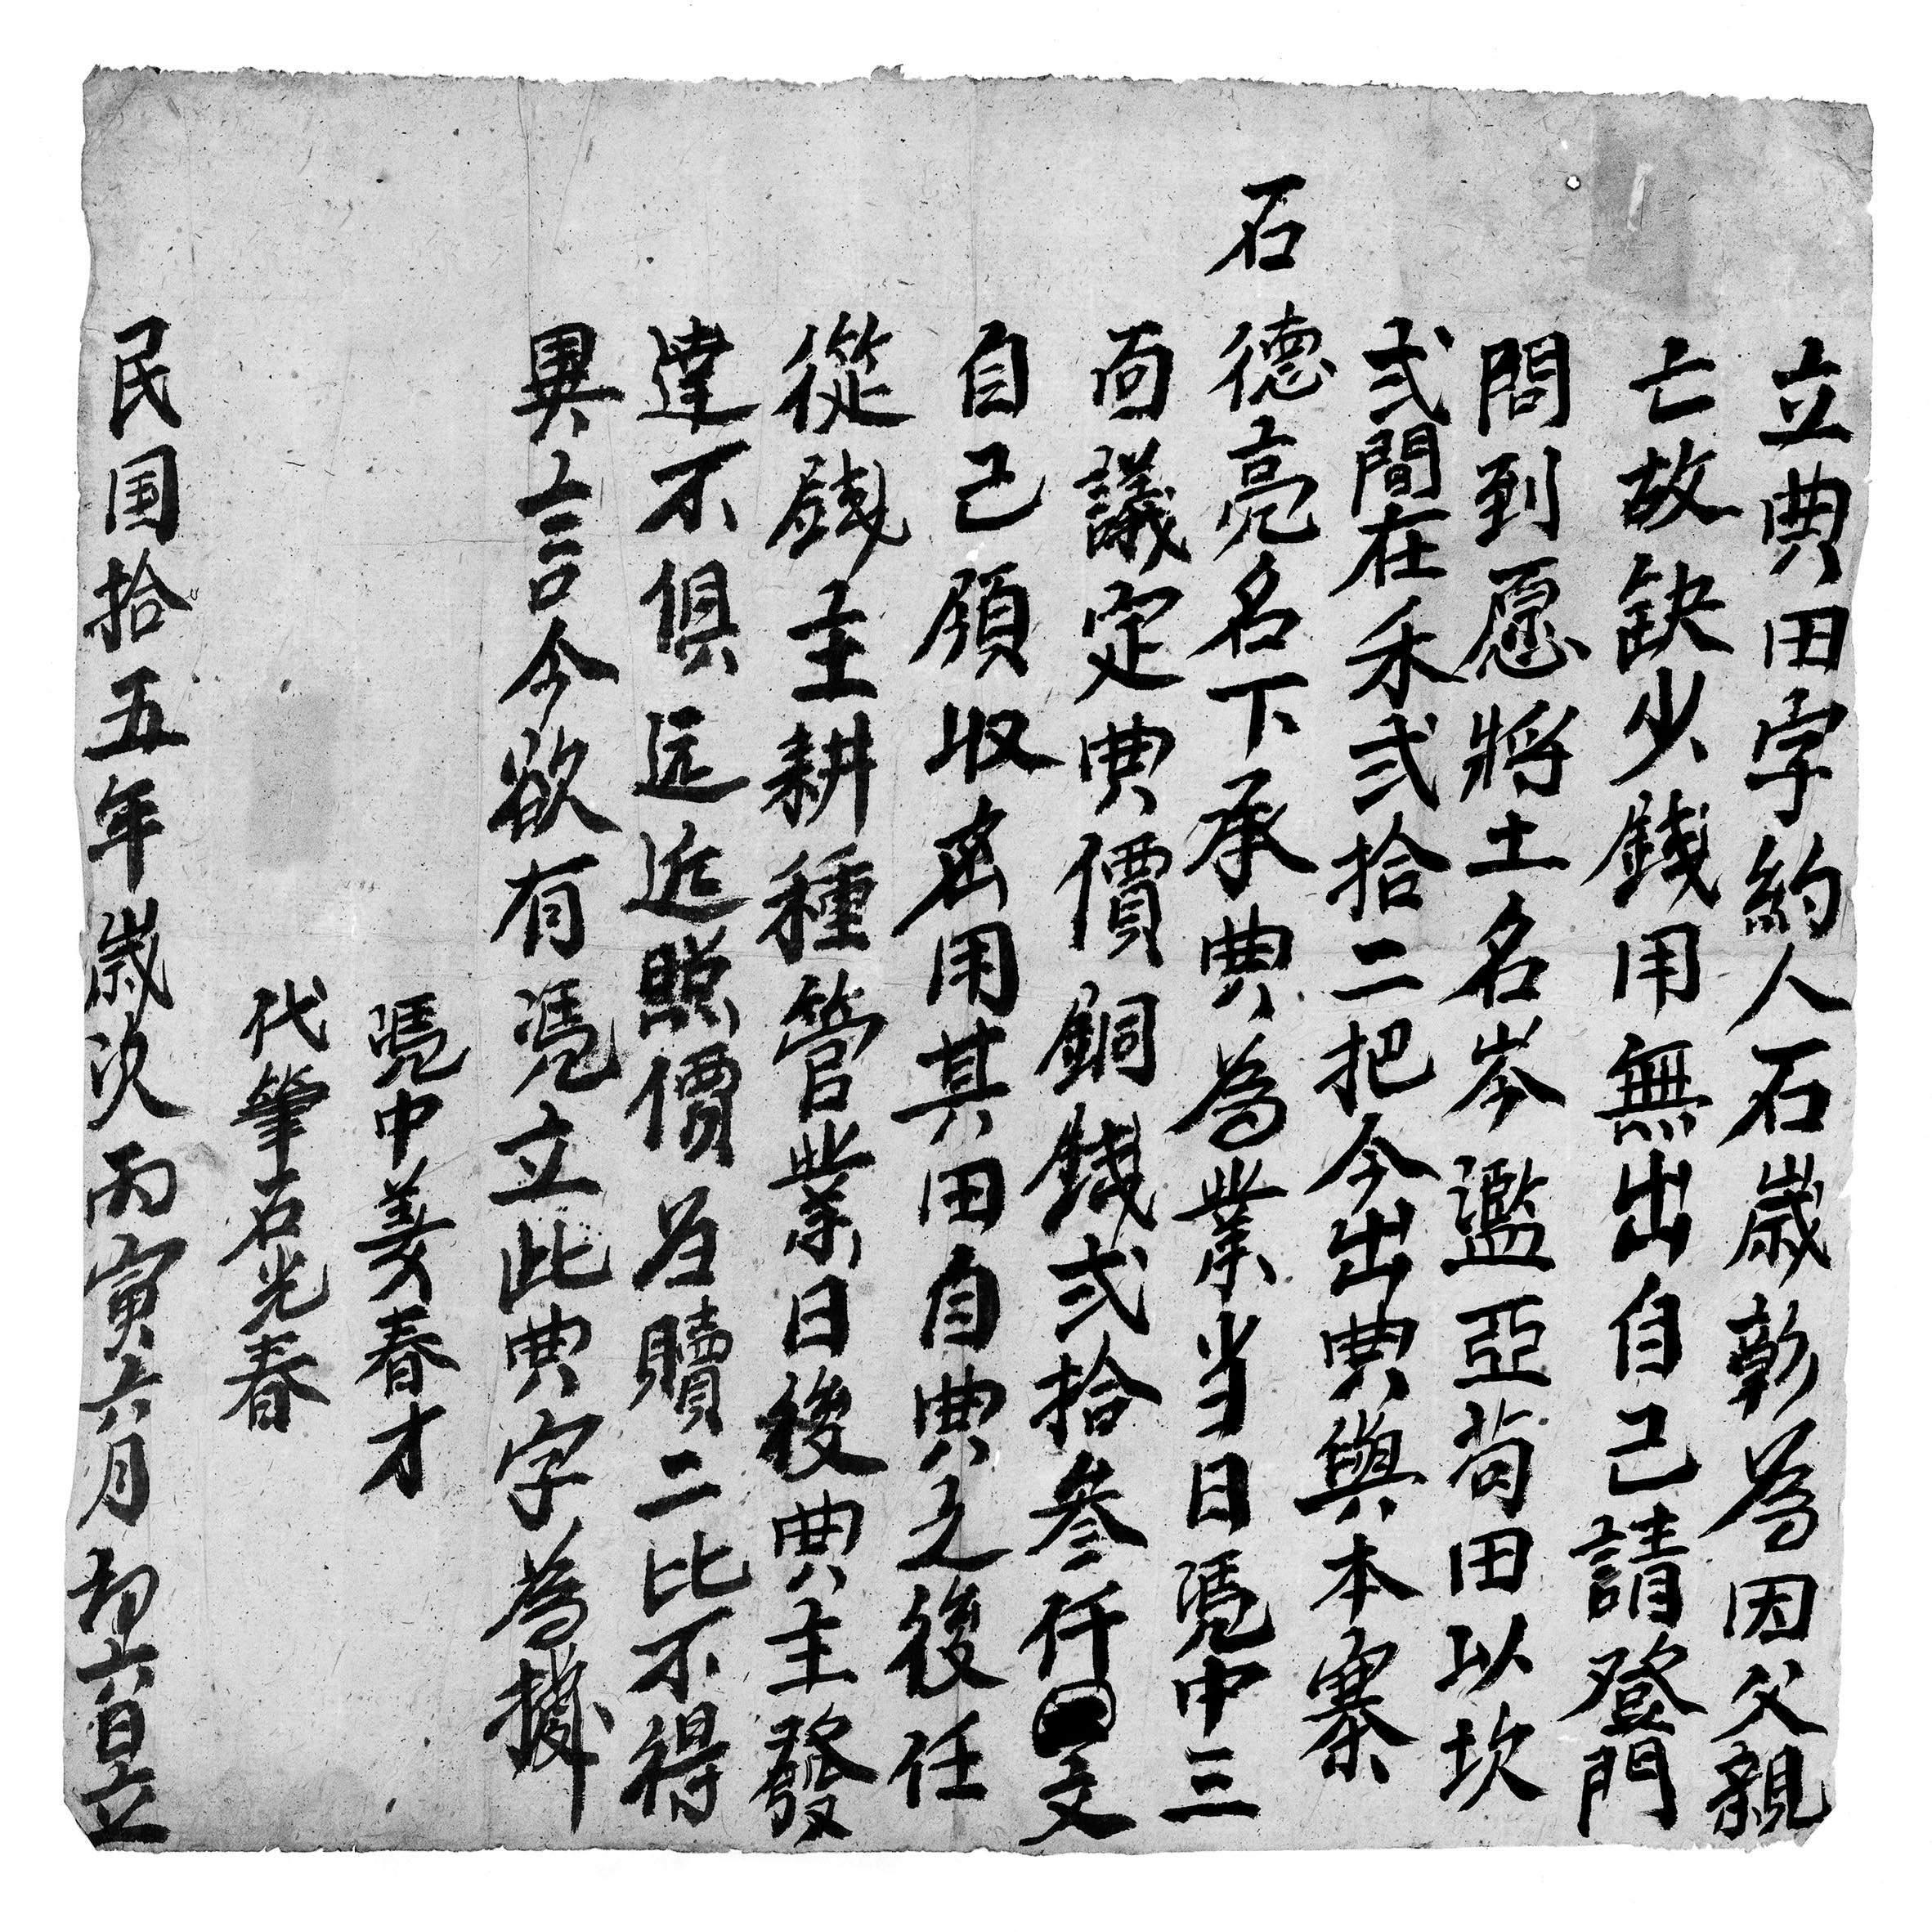 立典田字約人石歲彰為因父親
亡故缺少錢用無出自己請登門
問到愿將土名岑濫亞苟田以坎
弍間在禾弍拾二把今出典與本寨
石德亮名下承典為業当日凴中三
面議定典價銅錢弍拾參仟文
自己領收應用其田自典之後任
從錢主耕種管業日後典主發
達不俱远近照價為贖二比不得
異言今欲有凴立此典字為據
凴中姜春才
代筆石光春
民国拾五年歲次丙寅六月初六日立